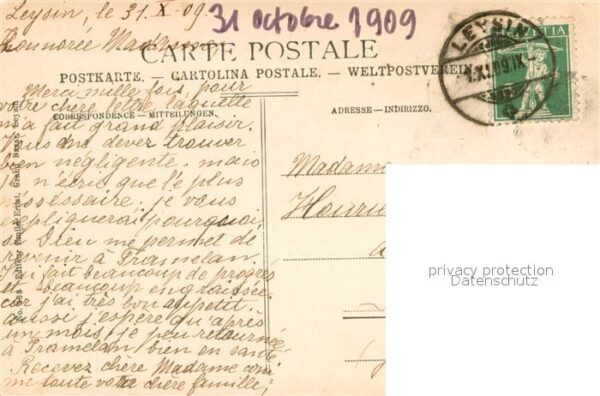 Leysin, le 31. X. 09.
31 octobre 1909
Honnorée Madame
CARTE POSTALE
POSTKARTE. — CARTOLINA POSTALE. — WELTPOSTVEREIN
LEYSIN
CORRESPONDENCE — MITTEILUNGEN.
ADRESSE — INDIRIZZO.
Merci mille fois, pour
votre chère lettre, laquelle
m'a fait grand plaisir.
Vous me devez trouver
bien négligente. mais
je n'écris que le plus
nésséssaire, je vous
expliquerai pourquoi,
si Dieu me permet de
revenir à Tramelan.
J'ai fait beaucoup de progrès
et beaucoup engraissée.
car j'ai très bon appetit.
aussi j'espère qu'après
un mois, je peu retournée
à Tramelan, bien en santé
Recevez chère Madame com
me toute votre chère famille,
Madame
privacy protection
Datenschutz